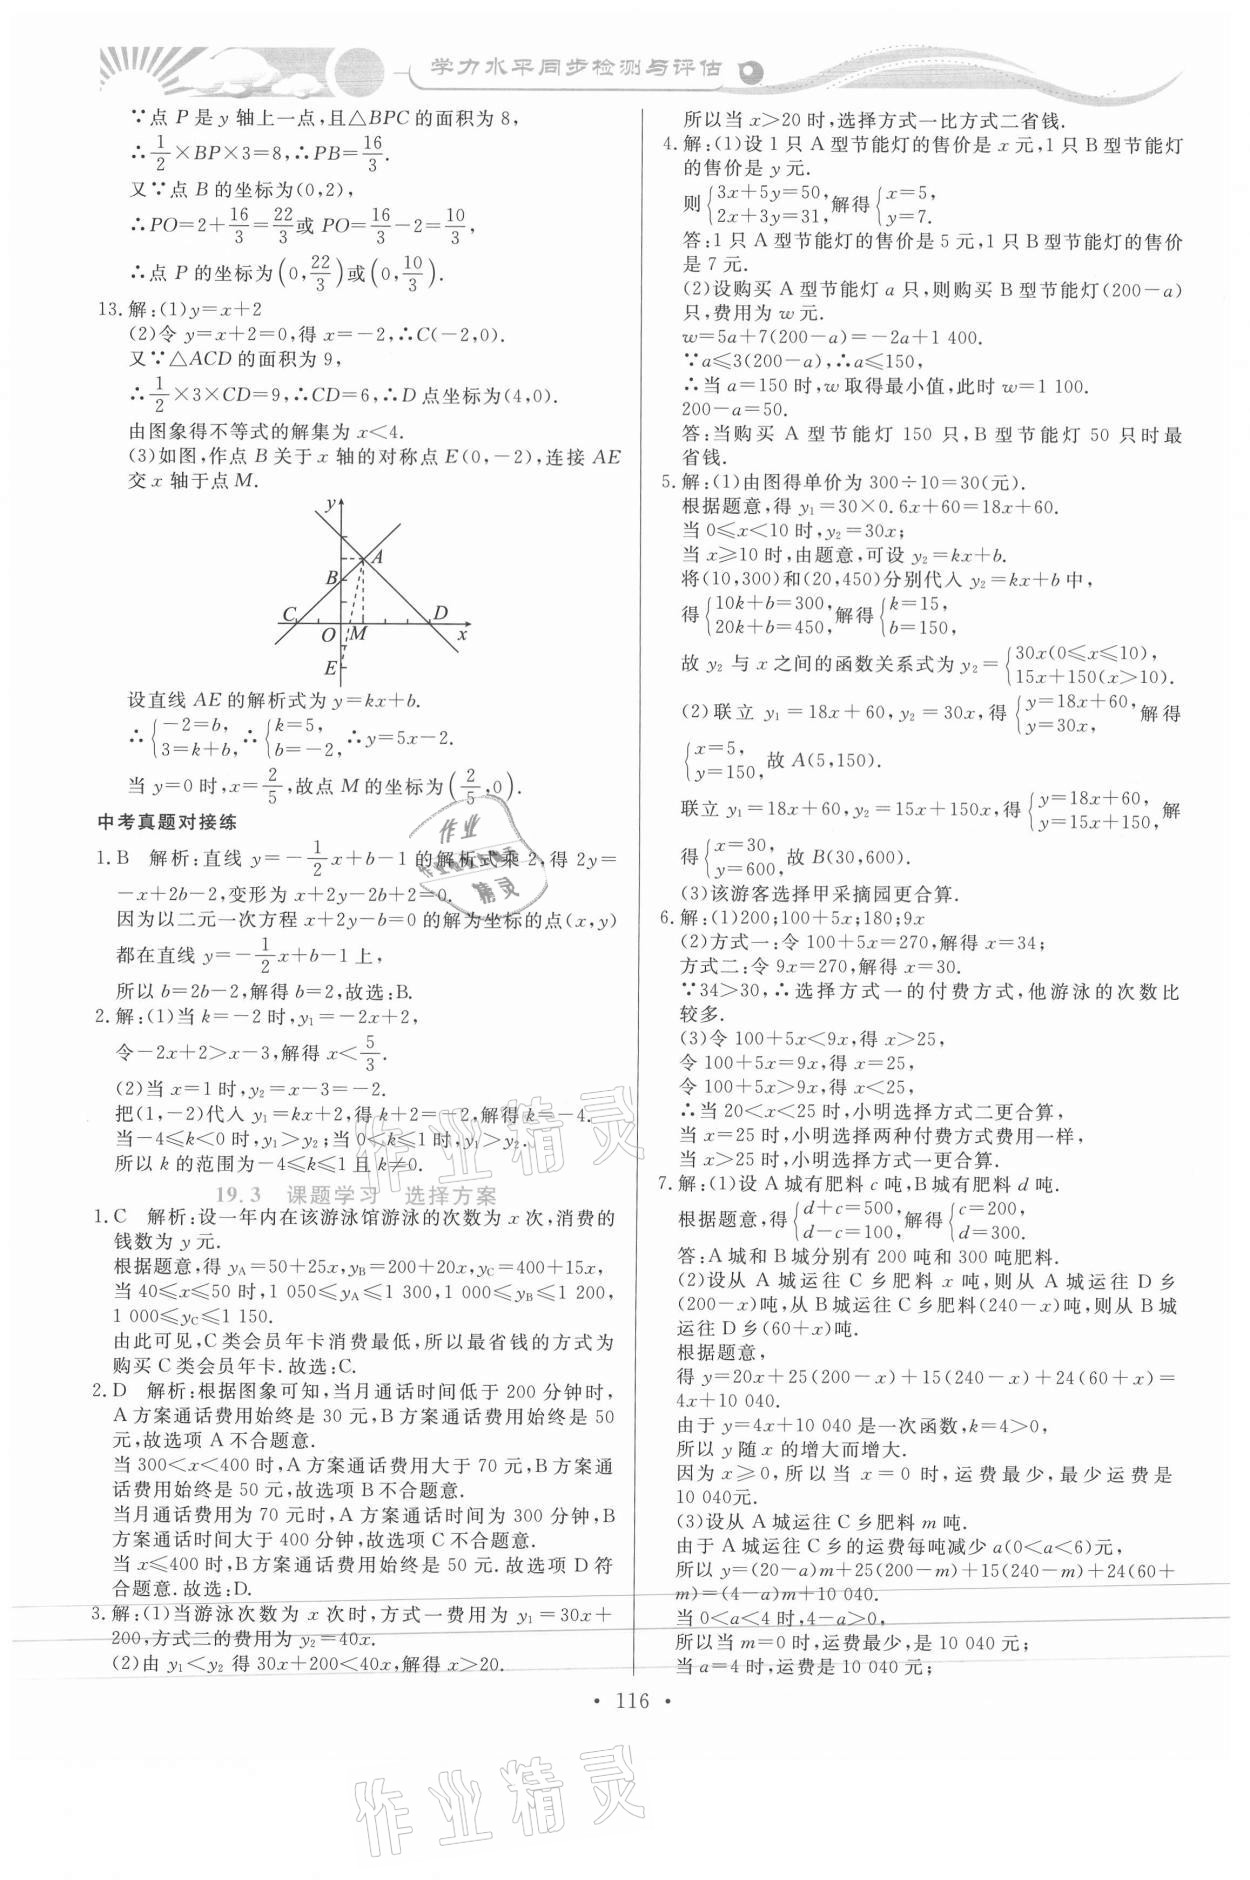 学力水平同步检测与评估
∵点 P 是 y 轴上一点,且△BPC 的面积为 8,
∴1/2×BP×3=8,∴PB=16/3.
又∵点 B 的坐标为(0,2),
∴PO=2+16/3=22/3或 PO=16/3-2=10/3,
∴点 P 的坐标为(0,22/3)或(0,10/3).
13.解:(1)y=x+2
(2)令 y=x+2=0,得 x=-2,∴C(-2,0).
又∵△ACD 的面积为 9,
∴1/2×3×CD=9,∴CD=6,∴D 点坐标为(4,0).
由图象得不等式的解集为 x<4.
(3)如图,作点 B 关于 x 轴的对称点 E(0,-2),连接 AE
交 x 轴于点 M.
y
A
B
C
D
O M
x
E
设直线 AE 的解析式为 y=kx+b.
∴{-2=b, 3=k+b,∴{k=5, b=-2,∴y=5x-2.
当 y=0 时,x=2/5,故点 M 的坐标为(2/5,0).
中考真题对接练
1.B 解析:直线 y=-1/2x+b-1 的解析式乘 2,得 2y=
-x+2b-2,变形为 x+2y-2b+2=0.
因为以二元一次方程 x+2y-b=0 的解为坐标的点(x,y)
都在直线 y=-1/2x+b-1 上,
所以 b=2b-2,解得 b=2,故选:B.
2.解:(1)当 k=-2 时,y₁=-2x+2,
令-2x+2>x-3,解得 x<5/3.
(2)当 x=1 时,y₂=x-3=-2.
把(1,-2)代入 y₁=kx+2,得 k+2=-2,解得 k=-4.
当-4≤k<0 时,y₁>y₂;当 0<k≤1 时,y₁>y₂.
所以 k 的范围为-4≤k≤1 且 k≠0.
19.3 课题学习 选择方案
1.C 解析:设一年内在该游泳馆游泳的次数为 x 次,消费的
钱数为 y 元.
根据题意,得 yA=50+25x,yB=200+20x,yC=400+15x,
当 40≤x≤50 时,1 050≤yA≤1 300,1 000≤yB≤1 200,
1 000≤yC≤1 150.
由此可见,C 类会员年卡消费最低,所以最省钱的方式为
购买 C 类会员年卡.故选:C.
2.D 解析:根据图象可知,当月通话时间低于 200 分钟时,
A 方案通话费用始终是 30 元,B 方案通话费用始终是 50
元,故选项 A 不合题意.
当 300<x<400 时,A 方案通话费用大于 70 元,B 方案通
话费用始终是 50 元,故选项 B 不合题意.
当月通话费用为 70 元时,A 方案通话时间为 300 分钟,B
方案通话时间大于 400 分钟,故选项 C 不合题意.
当 x≤400 时,B 方案通话费用始终是 50 元.故选项 D 符
合题意.故选:D.
3.解:(1)当游泳次数为 x 次时,方式一费用为 y₁=30x+
200,方式二的费用为 y₂=40x.
(2)由 y₁<y₂ 得 30x+200<40x,解得 x>20.
所以当 x>20 时,选择方式一比方式二省钱.
4.解:(1)设 1 只 A 型节能灯的售价是 x 元,1 只 B 型节能灯
的售价是 y 元.
则{3x+5y=50, 2x+3y=31,解得{x=5, y=7.
答:1 只 A 型节能灯的售价是 5 元,1 只 B 型节能灯的售价
是 7 元.
(2)设购买 A 型节能灯 a 只,则购买 B 型节能灯(200-a)
只,费用为 w 元.
w=5a+7(200-a)=-2a+1 400.
∵a≤3(200-a),∴a≤150,
∴当 a=150 时,w 取得最小值,此时 w=1 100.
200-a=50.
答:当购买 A 型节能灯 150 只,B 型节能灯 50 只时最
省钱.
5.解:(1)由图得单价为 300÷10=30(元).
根据题意,得 y₁=30×0.6x+60=18x+60.
当 0≤x<10 时,y₂=30x;
当 x≥10 时,由题意,可设 y₂=kx+b.
将(10,300)和(20,450)分别代入 y₂=kx+b 中,
得{10k+b=300, 20k+b=450,解得{k=15, b=150,
故 y₂ 与 x 之间的函数关系式为 y₂={30x(0≤x≤10), 15x+150(x>10).
(2)联立 y₁=18x+60,y₂=30x,得{y=18x+60, y=30x,解得
{x=5, y=150,故 A(5,150).
联立 y₁=18x+60,y₂=15x+150x,得{y=18x+60, y=15x+150,解
得{x=30, y=600,故 B(30,600).
(3)该游客选择甲采摘园更合算.
6.解:(1)200;100+5x;180;9x
(2)方式一:令 100+5x=270,解得 x=34;
方式二:令 9x=270,解得 x=30.
∵34>30,∴选择方式一的付费方式,他游泳的次数比
较多.
(3)令 100+5x<9x,得 x>25,
令 100+5x=9x,得 x=25,
令 100+5x>9x,得 x<25,
∴当 20<x<25 时,小明选择方式二更合算,
当 x=25 时,小明选择两种付费方式费用一样,
当 x>25 时,小明选择方式一更合算.
7.解:(1)设 A 城有肥料 c 吨,B 城有肥料 d 吨.
根据题意,得{d+c=500, d-c=100,解得{c=200, d=300.
答:A 城和 B 城分别有 200 吨和 300 吨肥料.
(2)设从 A 城运往 C 乡肥料 x 吨,则从 A 城运往 D 乡
(200-x)吨,从 B 城运往 C 乡肥料(240-x)吨,则从 B 城
运往 D 乡(60+x)吨.
根据题意,
得 y=20x+25(200-x)+15(240-x)+24(60+x)=
4x+10 040.
由于 y=4x+10 040 是一次函数,k=4>0,
所以 y 随 x 的增大而增大.
因为 x≥0,所以当 x=0 时,运费最少,最少运费是
10 040元.
(3)设从 A 城运往 C 乡肥料 m 吨.
由于 A 城运往 C 乡的运费每吨减少 a(0<a<6)元,
所以 y=(20-a)m+25(200-m)+15(240-m)+24(60+
m)=(4-a)m+10 040.
当 0<a<4 时,4-a>0,
所以当 m=0 时,运费最少,是 10 040 元;
当 a=4 时,运费是 10 040 元;
• 116 •
作业精灵
作业精灵